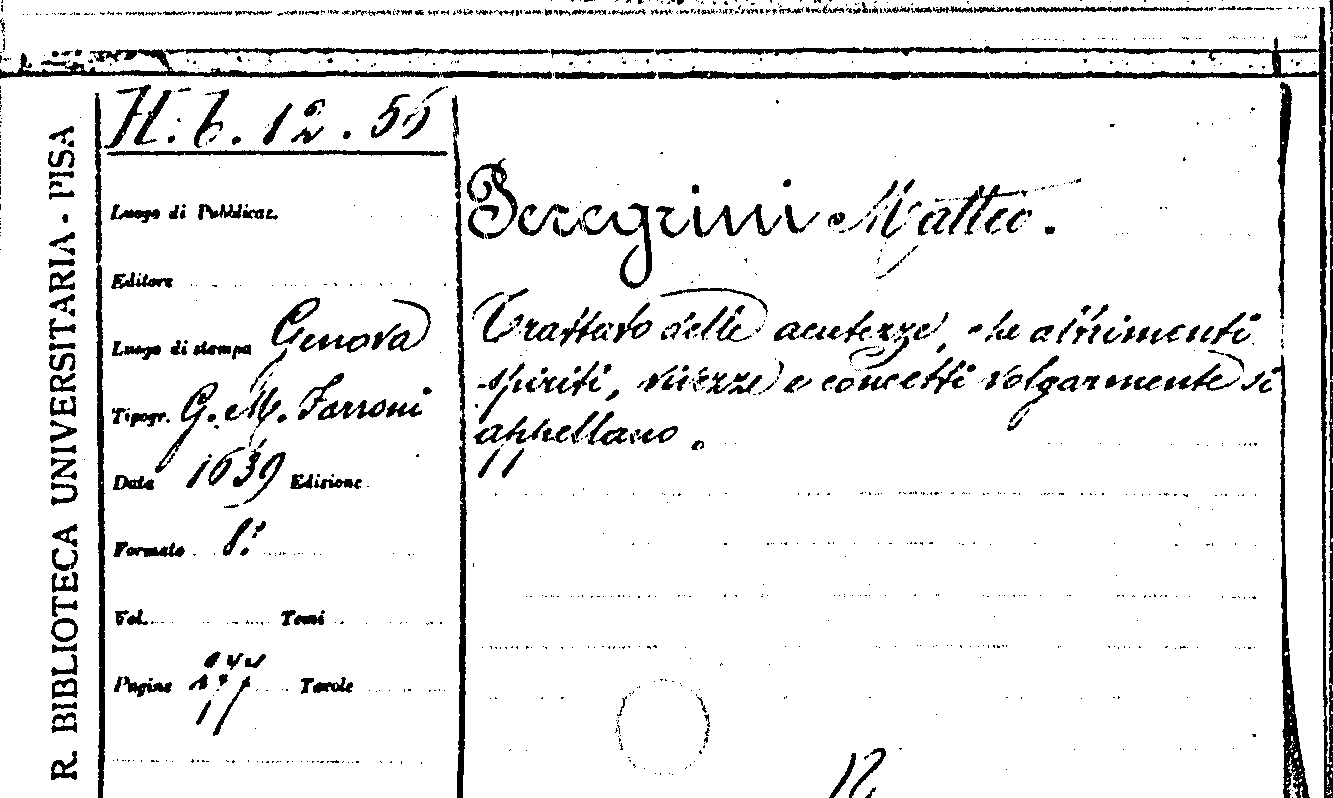 R. BIBLIOTECA UNIVERSITARIA - PISA
H. b. 12. 55
Luogo di Pubblicaz.
Editore
Luogo di stampa Genova
Tipogr. G. M. Farroni
Data 1639 Edizione
Formato 8.°
Vol. Tomi
Pagine Tavole
Peregrini Matteo.
Trattato delle acutezze, che altrimenti
spiriti, vivezze e concetti volgarmente si
appellano.
12